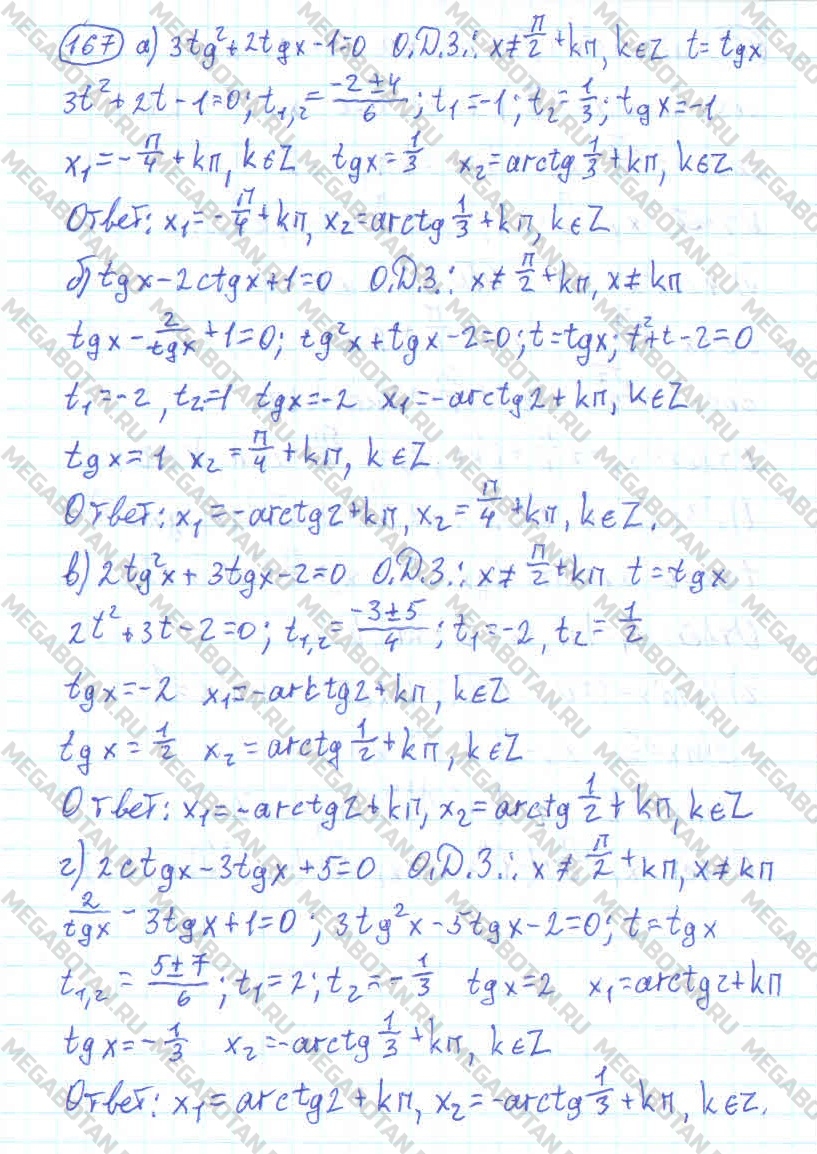 167 а) 3tg²+2tgx-1=0 О.Д.З.: x≠π/2+kπ, k∈Z t=tgx
3t²+2t-1=0; t₁,₂=(-2±4)/6; t₁=-1; t₂=1/3; tgx=-1
x₁=-π/4+kπ, k∈Z tgx=1/3 x₂=arctg 1/3+kπ, k∈Z
Ответ: x₁=-π/4+kπ, x₂=arctg 1/3+kπ, k∈Z
б) tgx-2ctgx+1=0 О.Д.З.: x≠π/2+kπ, x≠kπ
tgx-2/tgx+1=0; tg²x+tgx-2=0; t=tgx; t²+t-2=0
t₁=-2, t₂=1 tgx=-2 x₁=-arctg2+kπ, k∈Z
tgx=1 x₂=π/4+kπ, k∈Z
Ответ: x₁=-arctg2+kπ, x₂=π/4+kπ, k∈Z.
в) 2tg²x+3tgx-2=0 О.Д.З.: x≠π/2+kπ t=tgx
2t²+3t-2=0; t₁,₂=(-3±5)/4; t₁=-2, t₂=1/2
tgx=-2 x₁=-arctg2+kπ, k∈Z
tgx=1/2 x₂=arctg 1/2+kπ, k∈Z
Ответ: x₁=-arctg2+kπ, x₂=arctg 1/2+kπ, k∈Z
г) 2ctgx-3tgx+5=0 О.Д.З.: x≠π/2+kπ, x≠kπ
2/tgx-3tgx+1=0; 3tg²x-5tgx-2=0; t=tgx
t₁,₂=(5±7)/6; t₁=2; t₂=-1/3 tgx=2 x₁=arctg2+kπ
tgx=-1/3 x₂=-arctg 1/3+kπ, k∈Z
Ответ: x₁=arctg2+kπ, x₂=-arctg 1/3+kπ, k∈Z.
MEGABOTAN.RU